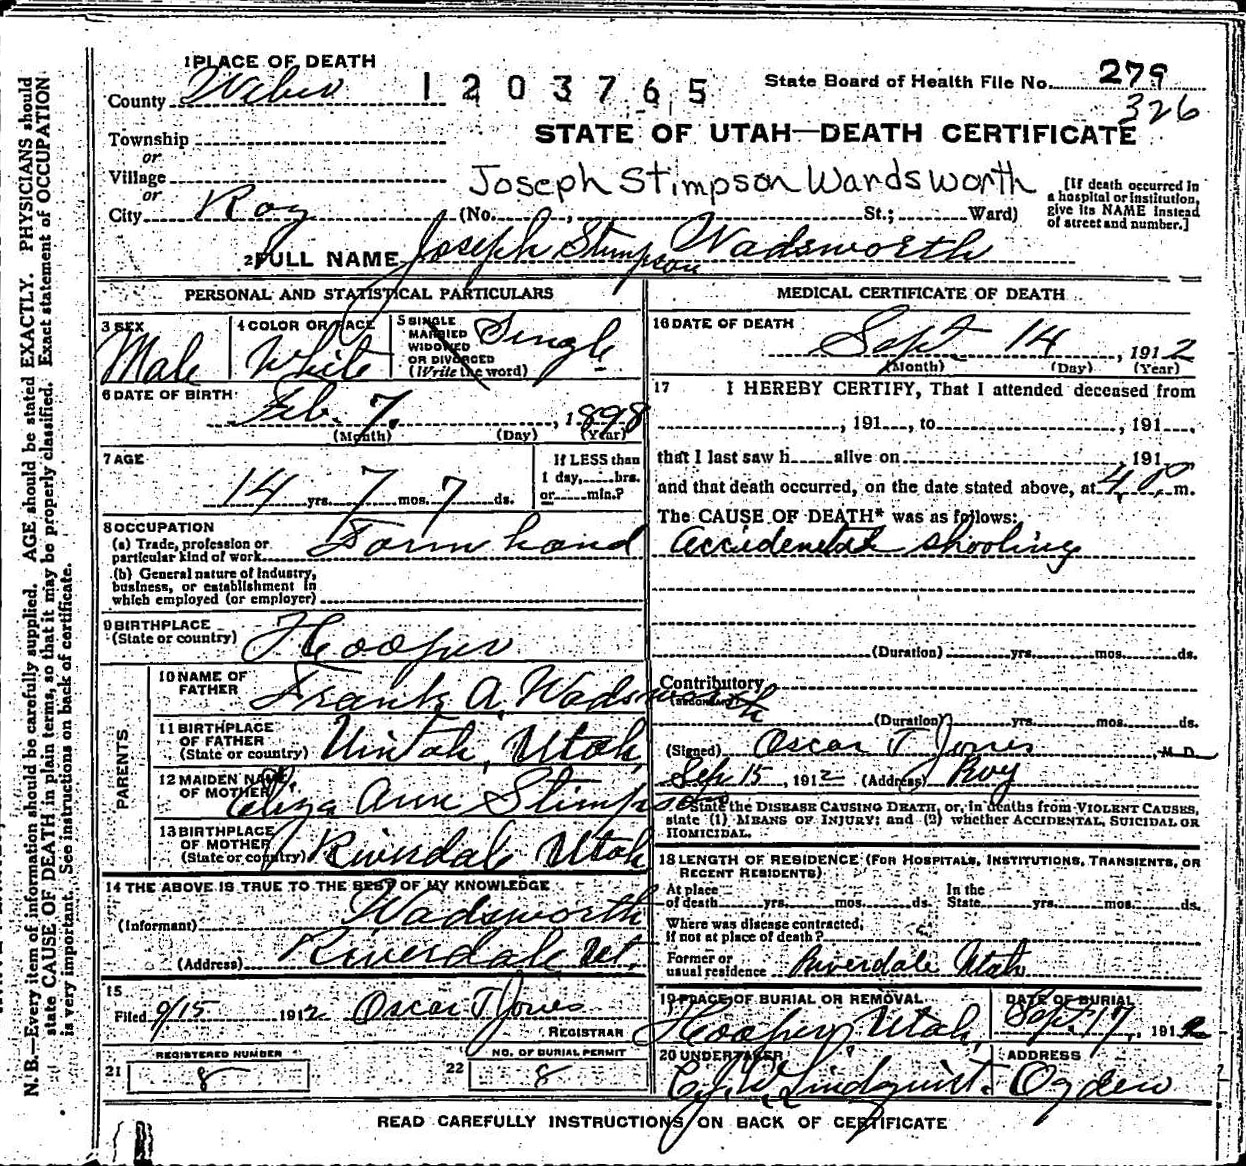 1 PLACE OF DEATH
County Weber
1203765
State Board of Health File No. 279
326
STATE OF UTAH—DEATH CERTIFICATE
Township
or
Village
or
City Roy
Joseph Stimpson Wardsworth
(No. , St.; Ward)
[If death occurred in
a hospital or institution,
give its NAME instead
of street and number.]
2 FULL NAME Joseph Stimpson Wadsworth
PERSONAL AND STATISTICAL PARTICULARS
3 SEX
Male
4 COLOR OR RACE
White
5 SINGLE
MARRIED
WIDOWED
OR DIVORCED
(Write the word)
Single
6 DATE OF BIRTH
Feb. 7. , 1898
(Month) (Day) (Year)
7 AGE
14 yrs. 7 mos. 7 ds.
If LESS than
1 day, hrs.
or min.?
8 OCCUPATION
(a) Trade, profession or
particular kind of work Farm hand
(b) General nature of Industry,
business, or establishment in
which employed (or employer)
9 BIRTHPLACE
(State or country) Hooper
PARENTS
10 NAME OF
FATHER Frank A. Wadsworth
11 BIRTHPLACE
OF FATHER
(State or country) Uintah, Utah,
12 MAIDEN NAME
OF MOTHER Eliza Ann Stimpson
13 BIRTHPLACE
OF MOTHER
(State or country) Riverdale Utah
14 THE ABOVE IS TRUE TO THE BEST OF MY KNOWLEDGE
(Informant) Wadsworth
(Address) Riverdale Ut.
15
Filed 9/15 1912 Oscar T Jones
REGISTRAR
21 REGISTERED NUMBER
8
22 NO. OF BURIAL PERMIT
8
MEDICAL CERTIFICATE OF DEATH
16 DATE OF DEATH
Sept 14 , 1912
(Month) (Day) (Year)
17 I HEREBY CERTIFY, That I attended deceased from
, 191 , to , 191 ,
that I last saw h alive on , 191
and that death occurred, on the date stated above, at 4 P. m.
The CAUSE OF DEATH* was as follows:
Accidental shooting
(Duration) yrs. mos. ds.
Contributory
(SECONDARY)
(Duration) yrs. mos. ds.
(Signed) Oscar T Jones , M. D.
Sep 15 , 1912 (Address) Roy
State the DISEASE CAUSING DEATH, or, in deaths from VIOLENT CAUSES,
state (1) MEANS OF INJURY; and (2) whether ACCIDENTAL, SUICIDAL OR
HOMICIDAL.
18 LENGTH OF RESIDENCE (FOR HOSPITALS, INSTITUTIONS, TRANSIENTS, OR
RECENT RESIDENTS)
At place
of death yrs. mos. ds.
In the
State yrs. mos. ds.
Where was disease contracted,
if not at place of death?
Former or
usual residence Riverdale Utah
19 PLACE OF BURIAL OR REMOVAL
Hooper, Utah,
DATE OF BURIAL
Sept. 17, 1912
20 UNDERTAKER
Lindquist.
ADDRESS
Ogden
READ CAREFULLY INSTRUCTIONS ON BACK OF CERTIFICATE
N. B.—Every item of information should be carefully supplied. AGE should be stated EXACTLY. PHYSICIANS should
state CAUSE OF DEATH in plain terms, so that it may be properly classified. Exact statement of OCCUPATION
is very important. See instructions on back of certificate.